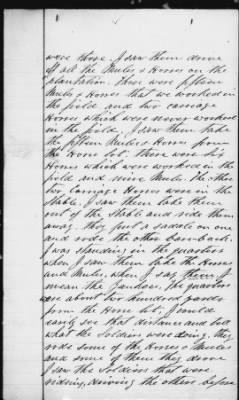 were there. I saw them drive
off all the Mules & Horses on the
plantation. There were fifteen
Mules & Horses that we worked in
the field and two carriage
Horses which were never worked
in the field. I saw them take
the fifteen Mules & Horses from
the Horse lot. There were six
Horses which were worked in the
field and nine Mules. The other
two Carriage Horses were in the
Stable. I saw them take them
out of the Stable and ride them
away. They put a saddle on one
and rode the other bareback.
I was standing in the quarters
when I saw them take the Horses
and Mules, when I say them I
mean the Yankees. The quarters
were about two hundred yards
from the Horse lot. I could
easily see that distance and tell
what the Soldiers were doing. They
rode some of the Horses & Mules
and some of them they drove
I saw the Soldiers that were
riding, driving the others before